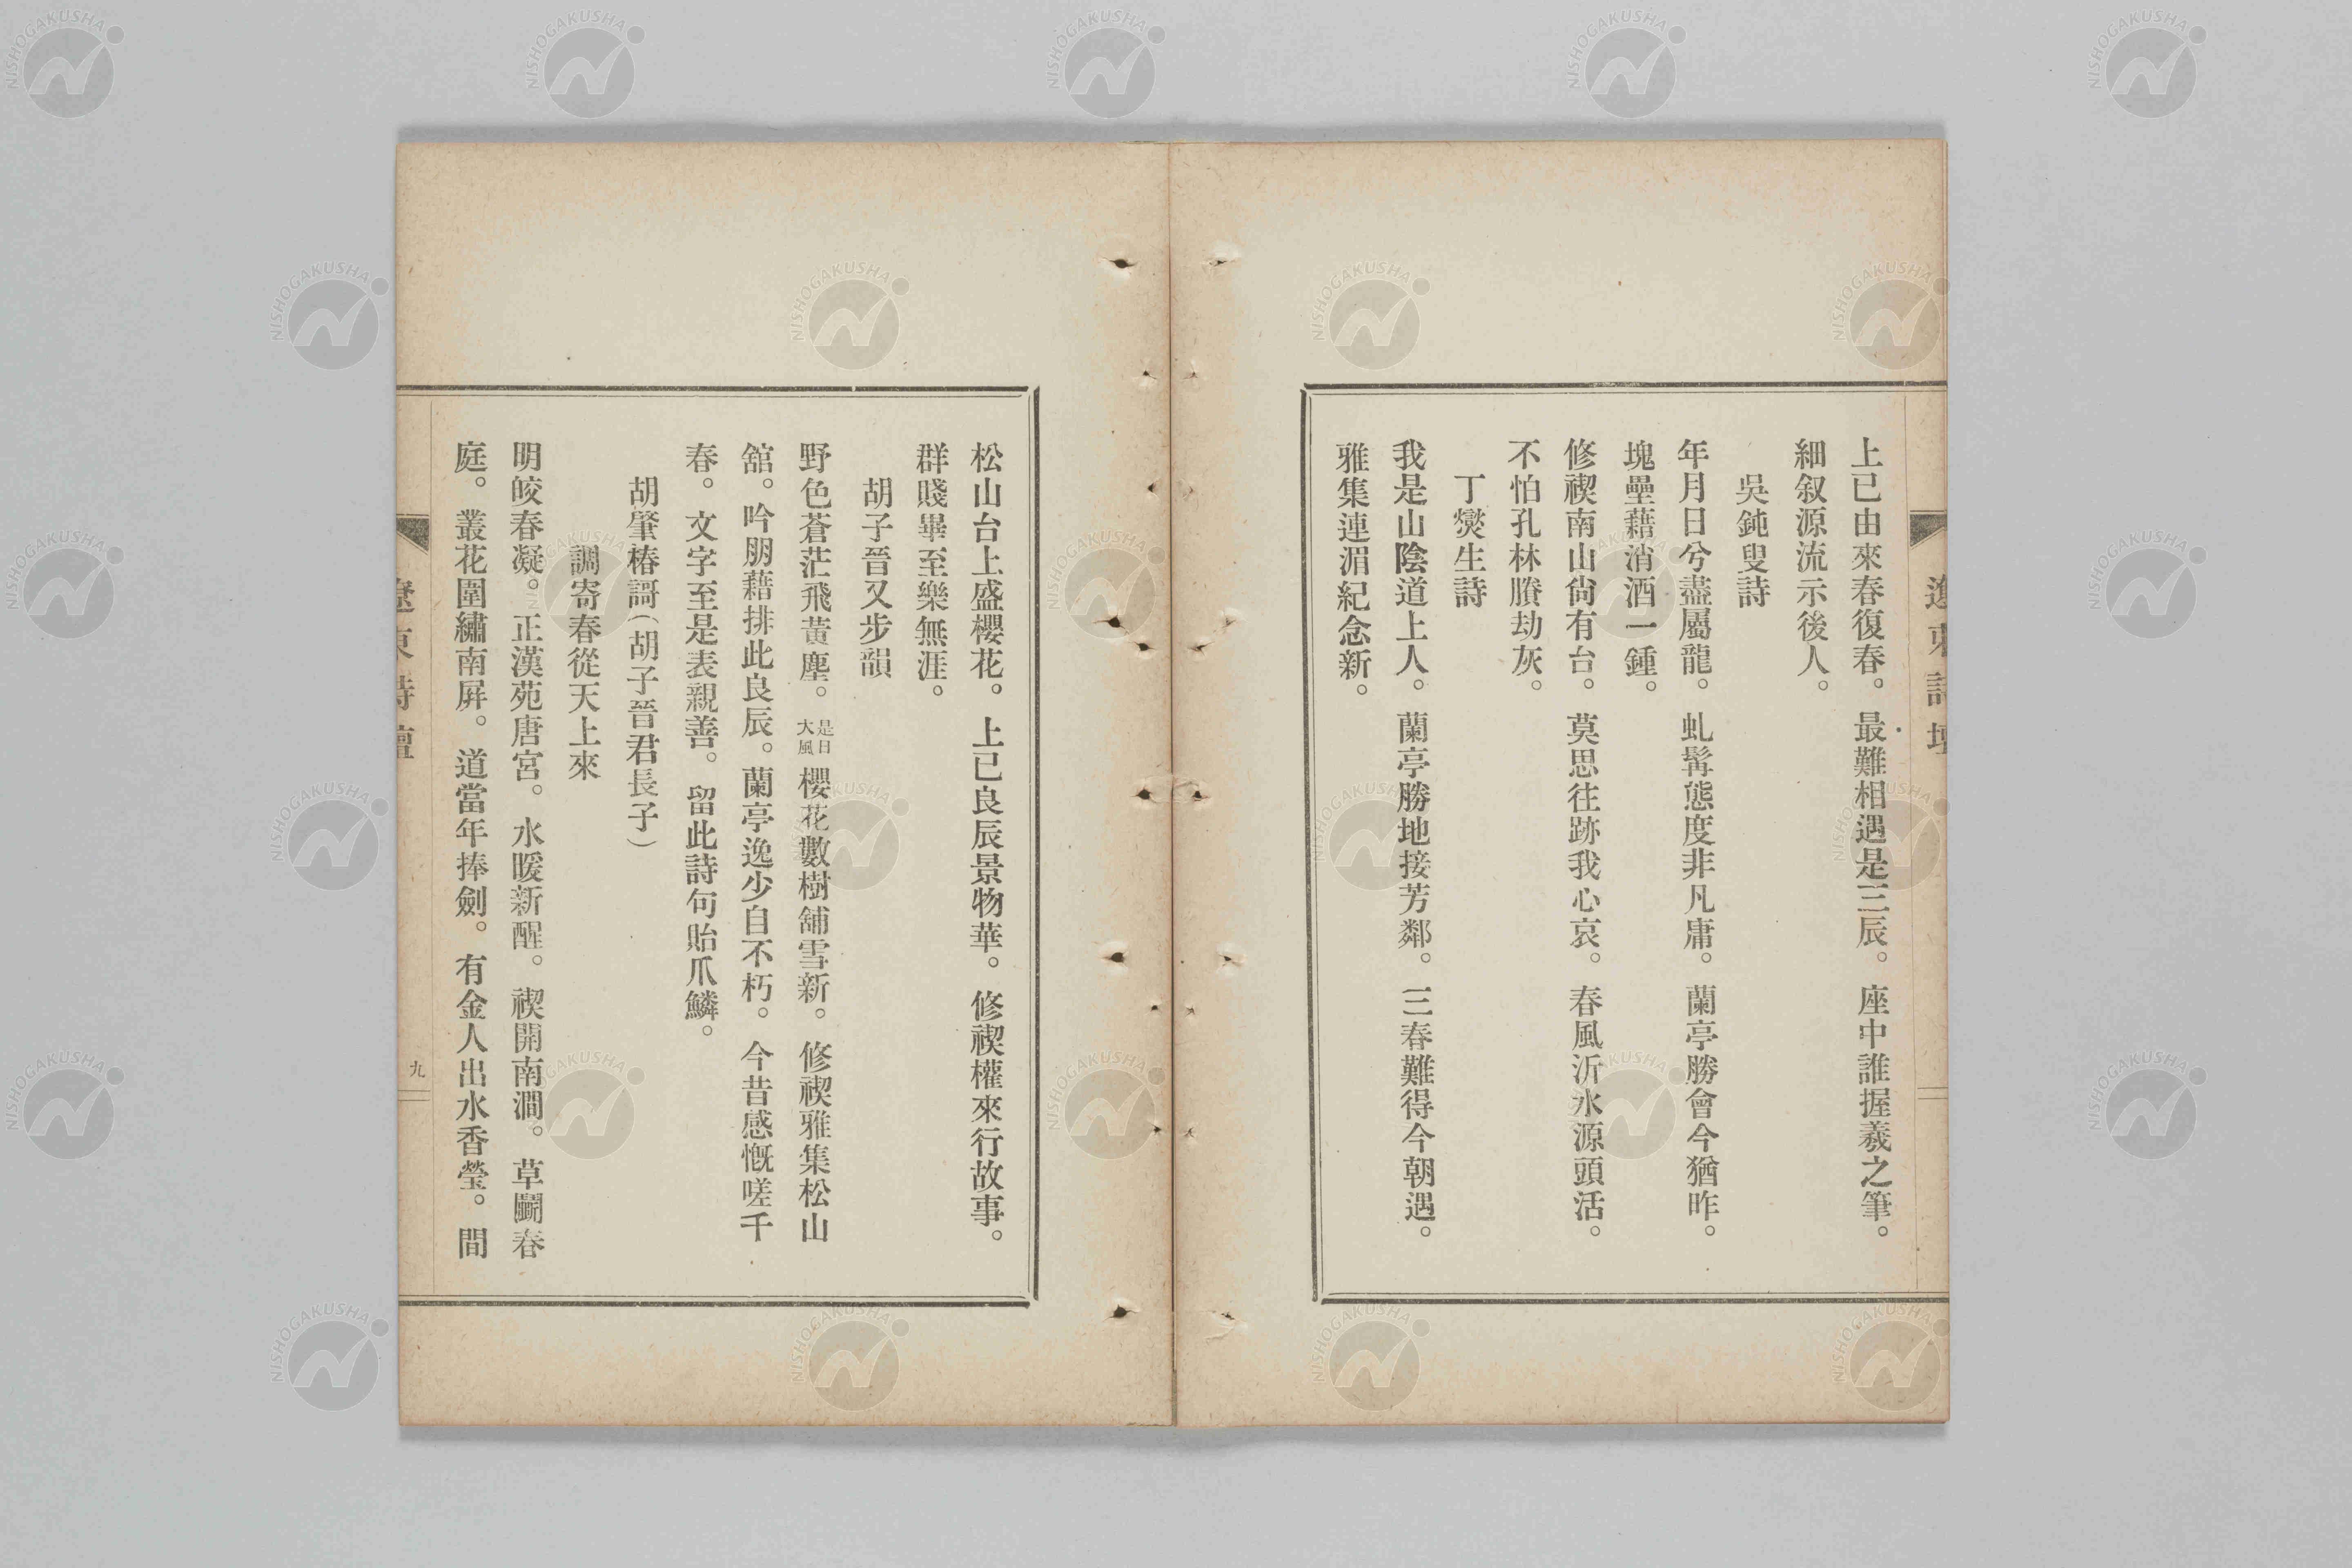 上已由來春復春。最難相遇是三辰。座中誰握羲之筆。
細叙源流示後人。
吳鈍叟詩
年月日兮盡屬龍。虬髯態度非凡庸。蘭亭勝會今猶昨。
塊壘藉消酒一鍾。
修禊南山尙有台。莫思往跡我心哀。春風沂水源頭活。
不怕孔林賸劫灰。
丁爕生詩
我是山陰道上人。蘭亭勝地接芳鄰。三春難得今朝遇。
雅集連湄紀念新。
松山台上盛櫻花。上已良辰景物華。修禊權來行故事。
群賤畢至樂無涯。
胡子晉又步韻
野色蒼茫飛黃塵。是日大風櫻花數樹舖雪新。修禊雅集松山
舘。吟朋藉排此良辰。蘭亭逸少自不朽。今昔感慨嗟千
春。文字至是表親善。留此詩句貽爪鱗。
胡肇椿謌(胡子晉君長子)
調寄春從天上來
明皎春凝。正漢苑唐宮。水暖新醒。禊開南澗。草鬭春
庭。叢花圍繡南屛。道當年捧劍。有金人出水香瑩。間
遼東詩壇
九
NISHOGAKUSHA